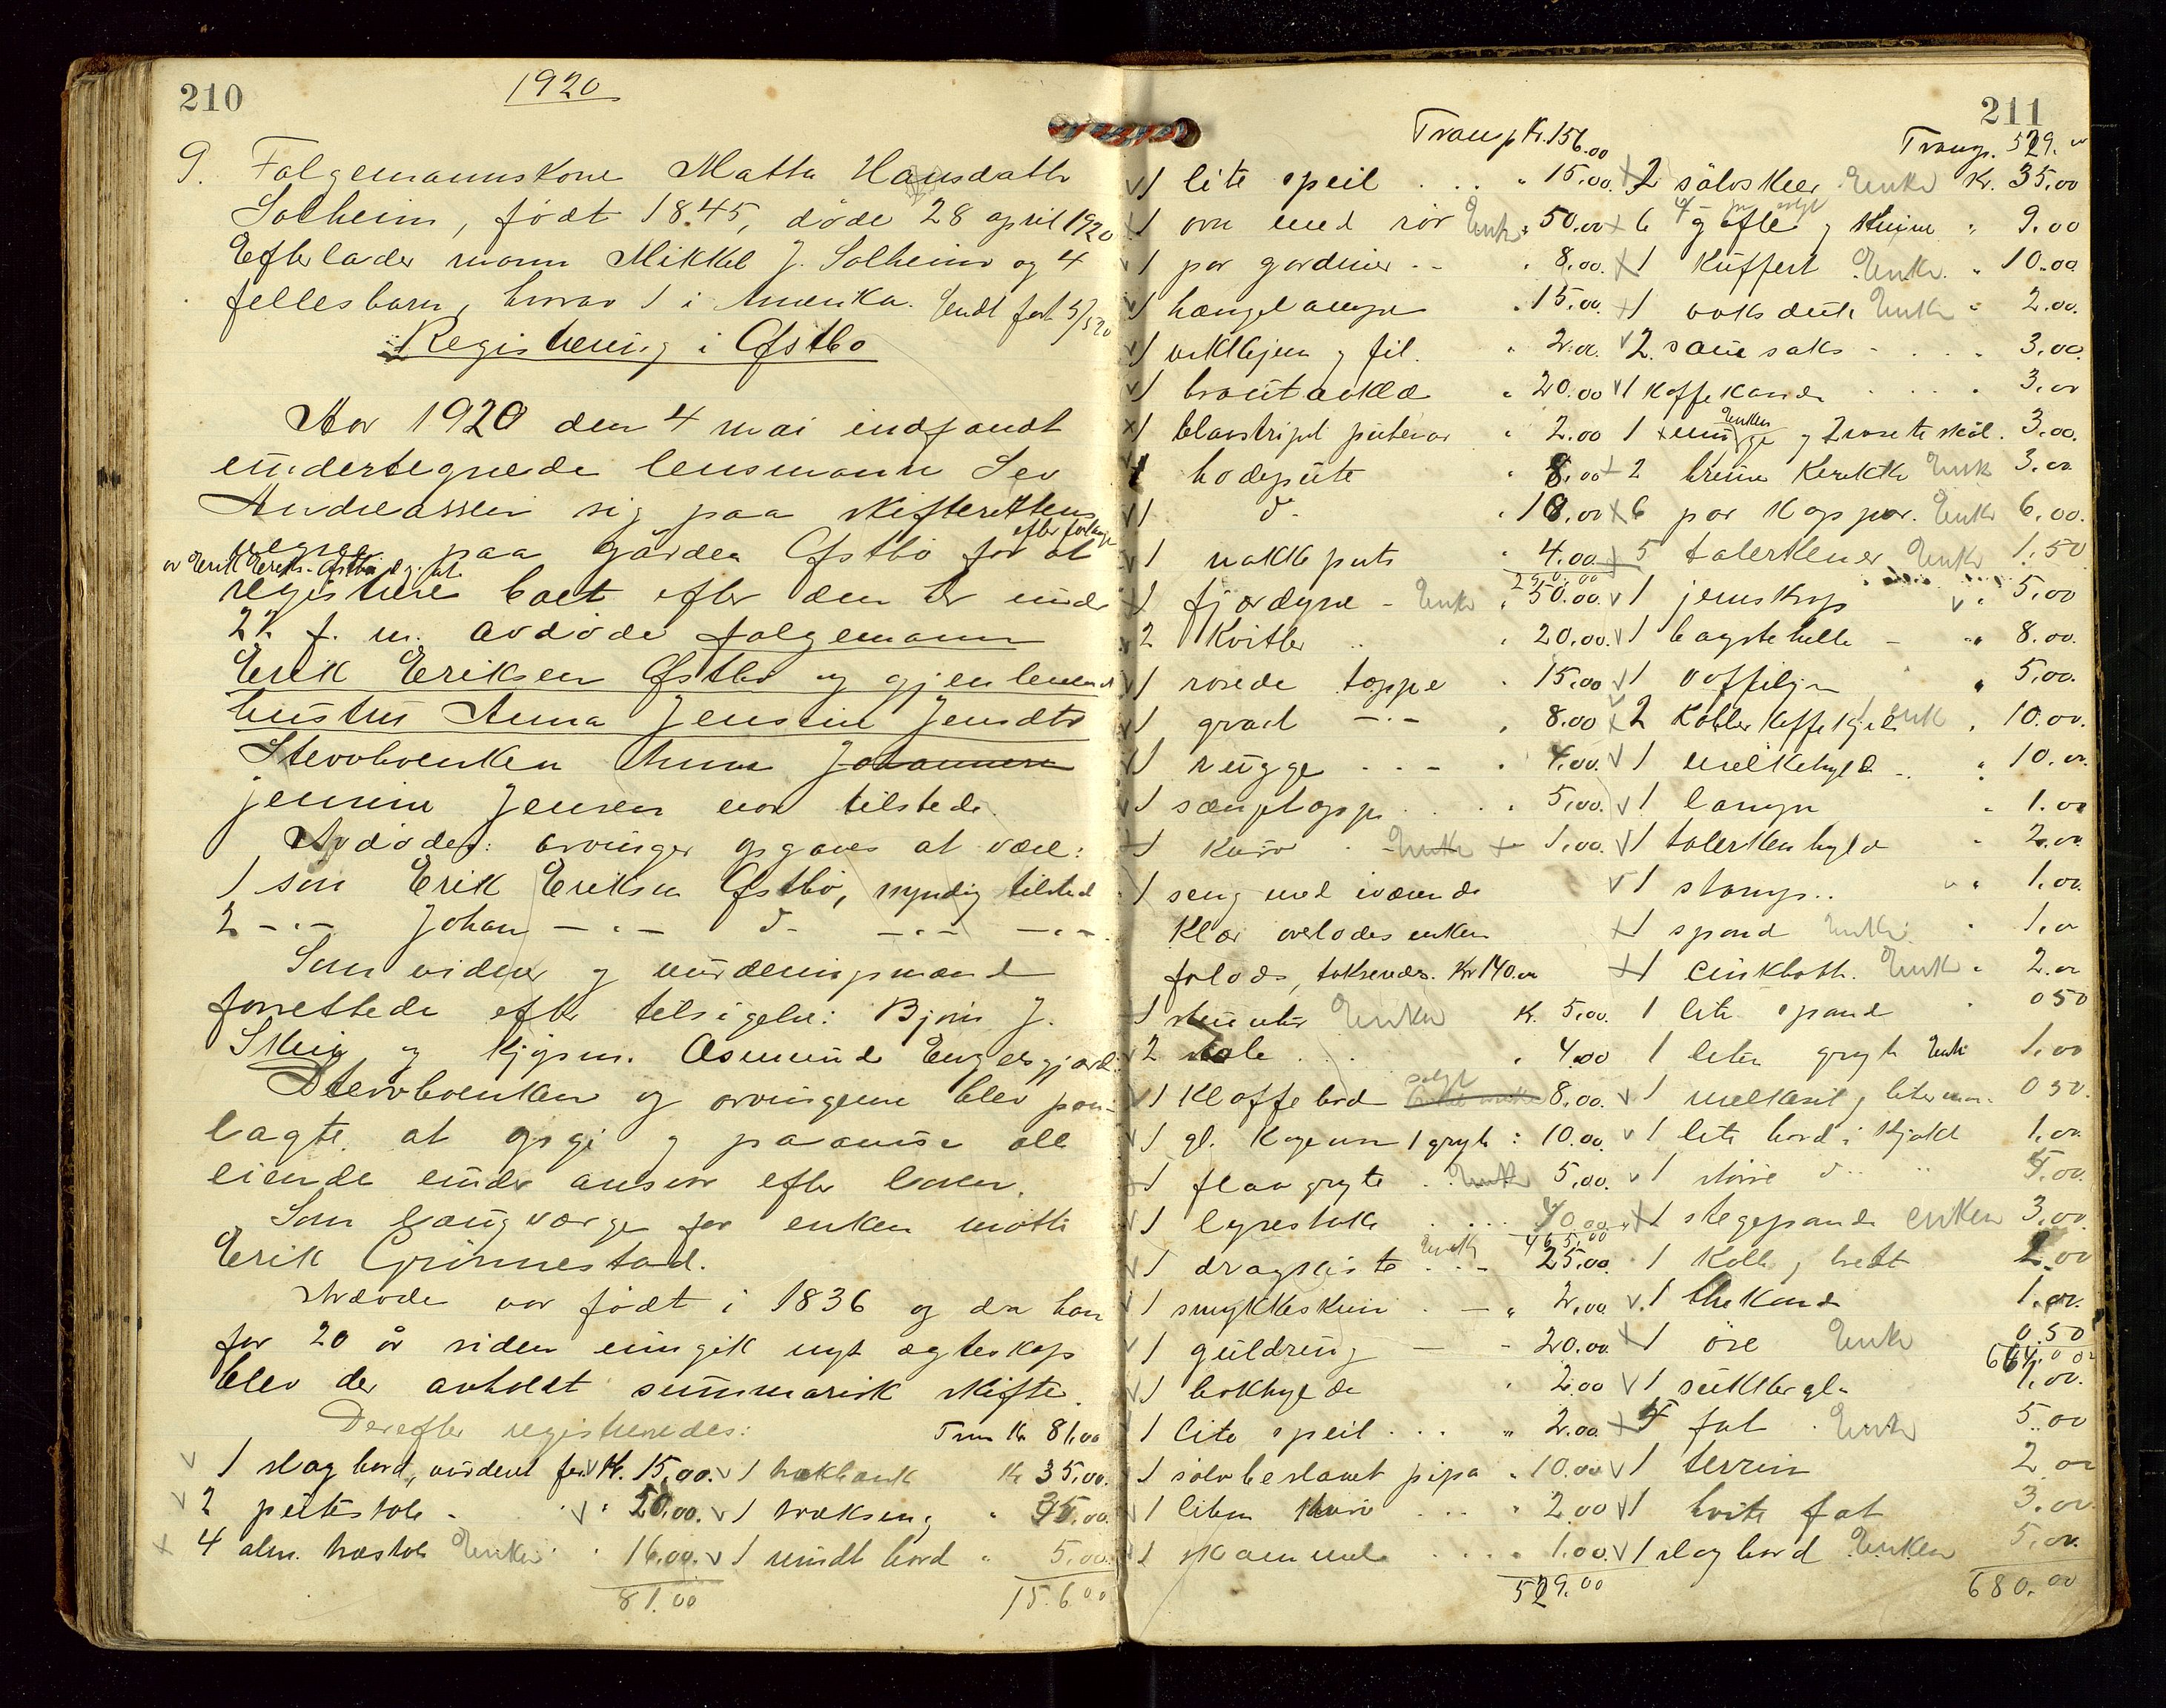 210
1920
9. Folgemannskone Matta Hansdatter
Solheim, født 1845, døde 28 april 1920
Efterlader mann Mikkel J. Solheim og 4
fellesbarn, hvorav 1 i Amerika. Sendt fort 5/5 20
Registrering i Østbø
Aar 1920 den 4 mai indfandt
undertegnede lensmann Sev
Andreassen sig paa skifterettens
vegne paa gården Østbø for efter forlange at
av Erik Eriks. Østbø
registrere boet efter den der under
2. f. m. avdøde folgemann
Erik Eriksen Østbø og gjenlevende
hustru Anna Jensine Jensdtr
Stervboenken Anna Johannesen
Jensine Jensen var tilstede.
Avdødes arvinger opgaves at være:
1 søn Erik Eriksen Østbø, myndig tilsted
2 -"- Johan -"- d- -"- -"-
Som vidner og vurderingsmænd
forrettede efter tilsigelse: Bjørn J.
Skeie og kjøpm. Asmund Engelsgjærd
Stervboenken og arvingerne blev paa-
lagte at opgi og paavise alt
eiende under ansvar efter loven.
Som laugværge for enken møtte
Erik Grönnestad.
Avdøde var født i 1836 og da han
for 20 år siden inngik nyt ægteskap
blev der avholdt summarisk skifte.
Derefter registreredes: Tran Kr 81.00
1 slagbord, vurderet for Kr. 15,00. 1 trækbænk Kr 35,00.
2 putestole - " 50,00. 1 træksæng " 35,00.
4 alm. træstole Enken " 16,00. 1 rundt bord " 5,00.
81.00 156.00
211
Transp Kr. 156.00
1 lite speil . . . " 15,00.
1 ovn med rör Enken " 50,00
1 par gardiner - - " 8,00.
1 hængelampe " 15,00.
1 vektbjem og fil. " 2,00.
1 brautaklæ " 20.00
1 blaastripet putevar " 2.00
1 hodepute " 8,00
1 d- " 18,00
1 nakkepute " 4.00
250.00
1 fjærdyne - Enken " 50.00.
2 Kvitler " 20,00.
1 rosede teppe " 15,00
1 graat -"- " 8.00
1 rugge - - - " 4,00.
1 sængteppe . . " 5,00.
1 Kurv - Enken 1,00.
1 seng med iværende
Klær overlodes enken
forlods, taksendes. Kr 140.00
1 stueuhr Enken K. 5,00.
2 stole . . . " 4,00
1 Klaffebord solgt 8,00.
1 gl. Kogeovn 1 gryte " 10.00
1 flaagryte . Enken 5,00.
1 lysestake . . . 40,00
465,00
1 dragkiste Enken 25,00
1 smykkeskrin . - " 2,00
1 guldring - - 20.00
1 bokhylde " 2.00
1 lite speil . . . " 2.00
1 sølvbeslaaet pipe " 10.00
1 liten kurv . . . " 2.00
1 skammel . . . . " 1.00
529.00
Transp. 529.00
2 sølvskeer Enken Kr. 35,00
6 gafle og knive " 9.00
1 Kuffert Enken. " 10.00
1 voksduk Enken " 2.00.
2 sauesaks - . . " 3,00.
1 kaffekande . . " 3.00
1 Enken og 2 rosete skål. 3,00.
2 Enken 3.00
6 par Kopper. Enken 6,00.
5 talerkener Enken 1.50
1 jernskrap " 5,00
1 bagstehelle - " 8.00.
1 vaffeljern " 5,00.
2 Kobber kaffekjele Enk " 10.00.
1 melkehylde " 10.00.
1 lampe " 1.00
1 talerkenhylde " 2.00
1 stamp.. " 1.00
1 spand Enken " 1.00
1 sinkbøtte. Enk " 2.00
1 lite spand " 0 50
1 liten gryte Enk 1,00
1 melkesil, 0 50.
1 lite bord i kjøkk 1.00
1 större d- " 5.00.
1 stegepande enken 3,00.
1 Kolle, brett 2.00
1 thekande 1.00.
1 öse Enken 0.50
664.00
1 sukkergl. 1.00.
5 fat . Enken 5.00
1 terrin 2 00
1 hvite fat 3.00.
1 slagbord Enken 5,00.
680.00